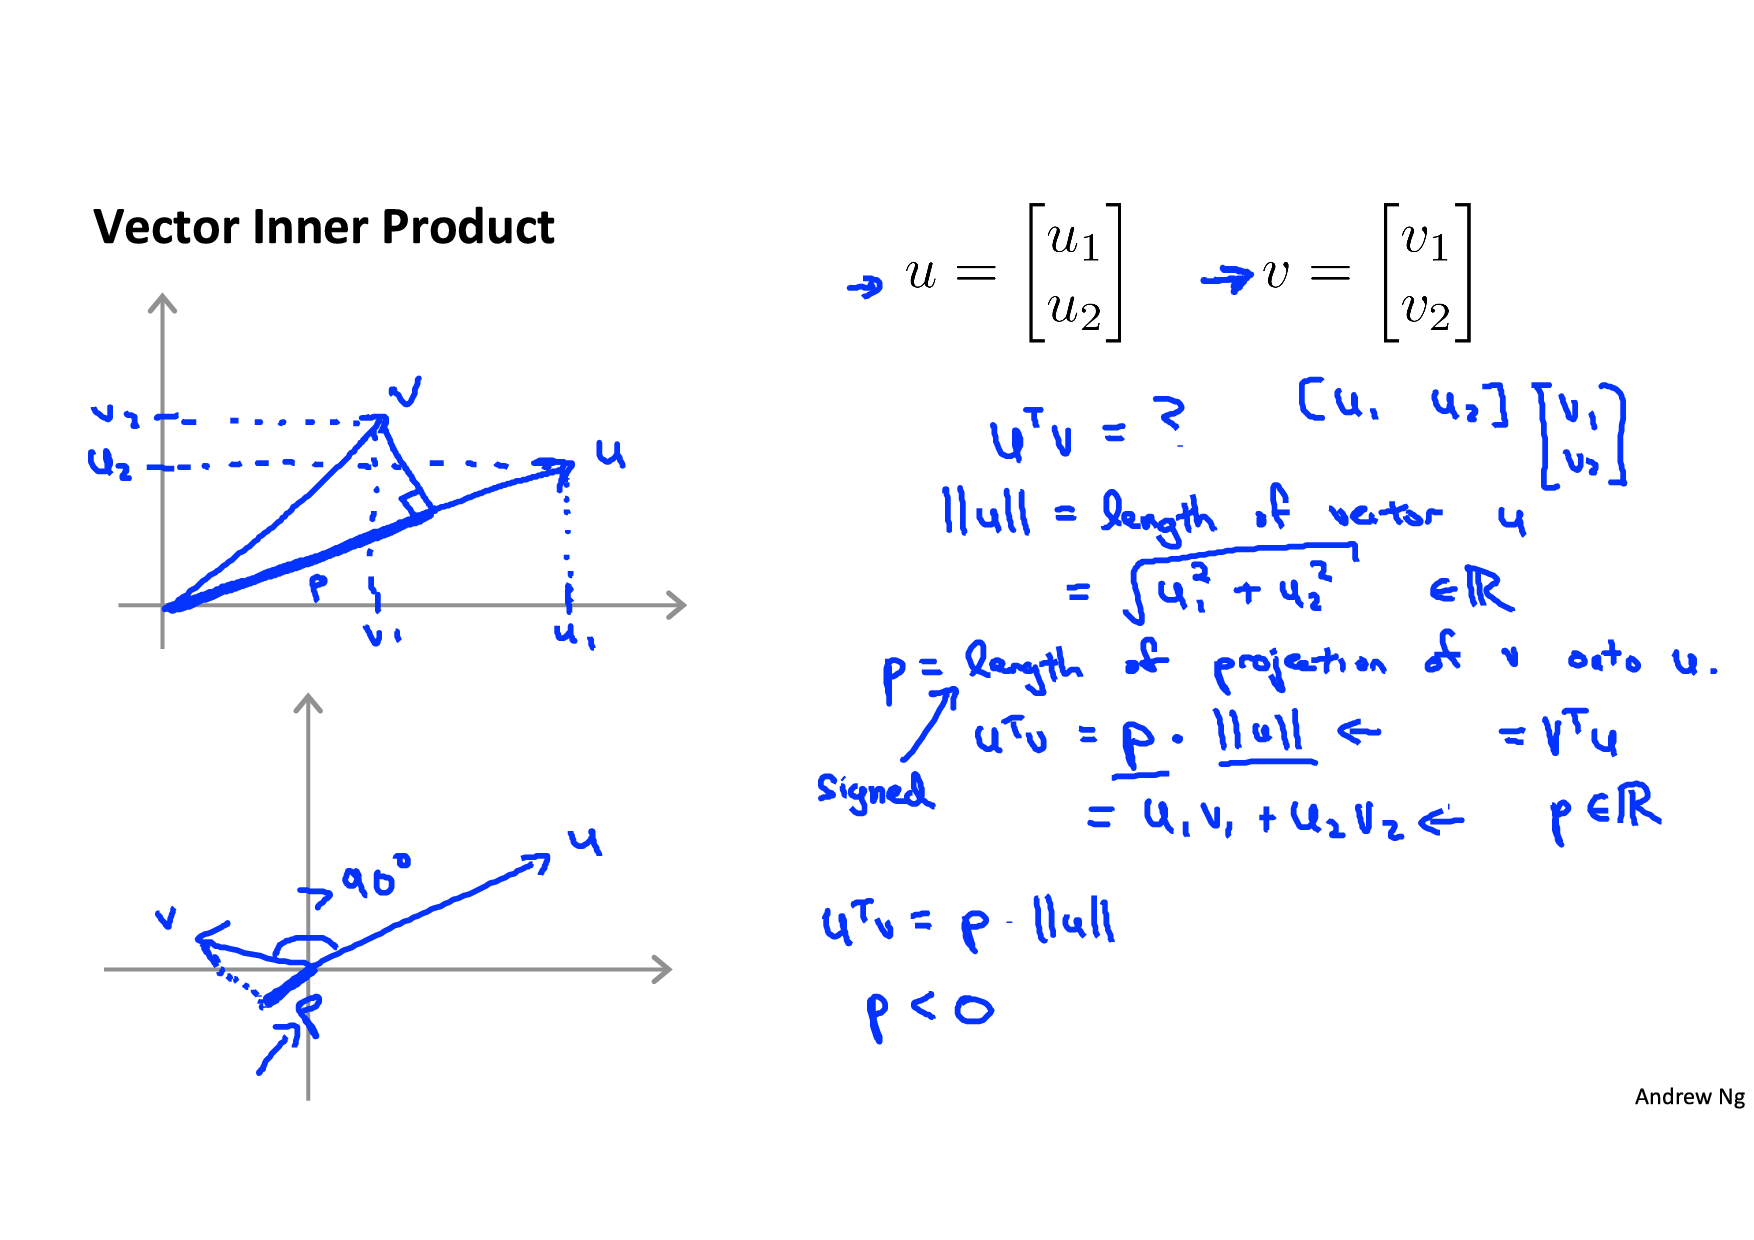 Vector Inner Product
→ u = [u1 u2] → v = [v1 v2]
v
v2
u2
u
p
v1 u1
uᵀv = ? [u1 u2] [v1 v2]
||u|| = length of vector u
= √(u1² + u2²) ∈ ℝ
p = length of projection of v onto u.
signed
uᵀv = p · ||u|| ← = vᵀu
= u1 v1 + u2 v2 ← p ∈ ℝ
u
90°
v
p
uᵀv = p · ||u||
p < 0
Andrew Ng